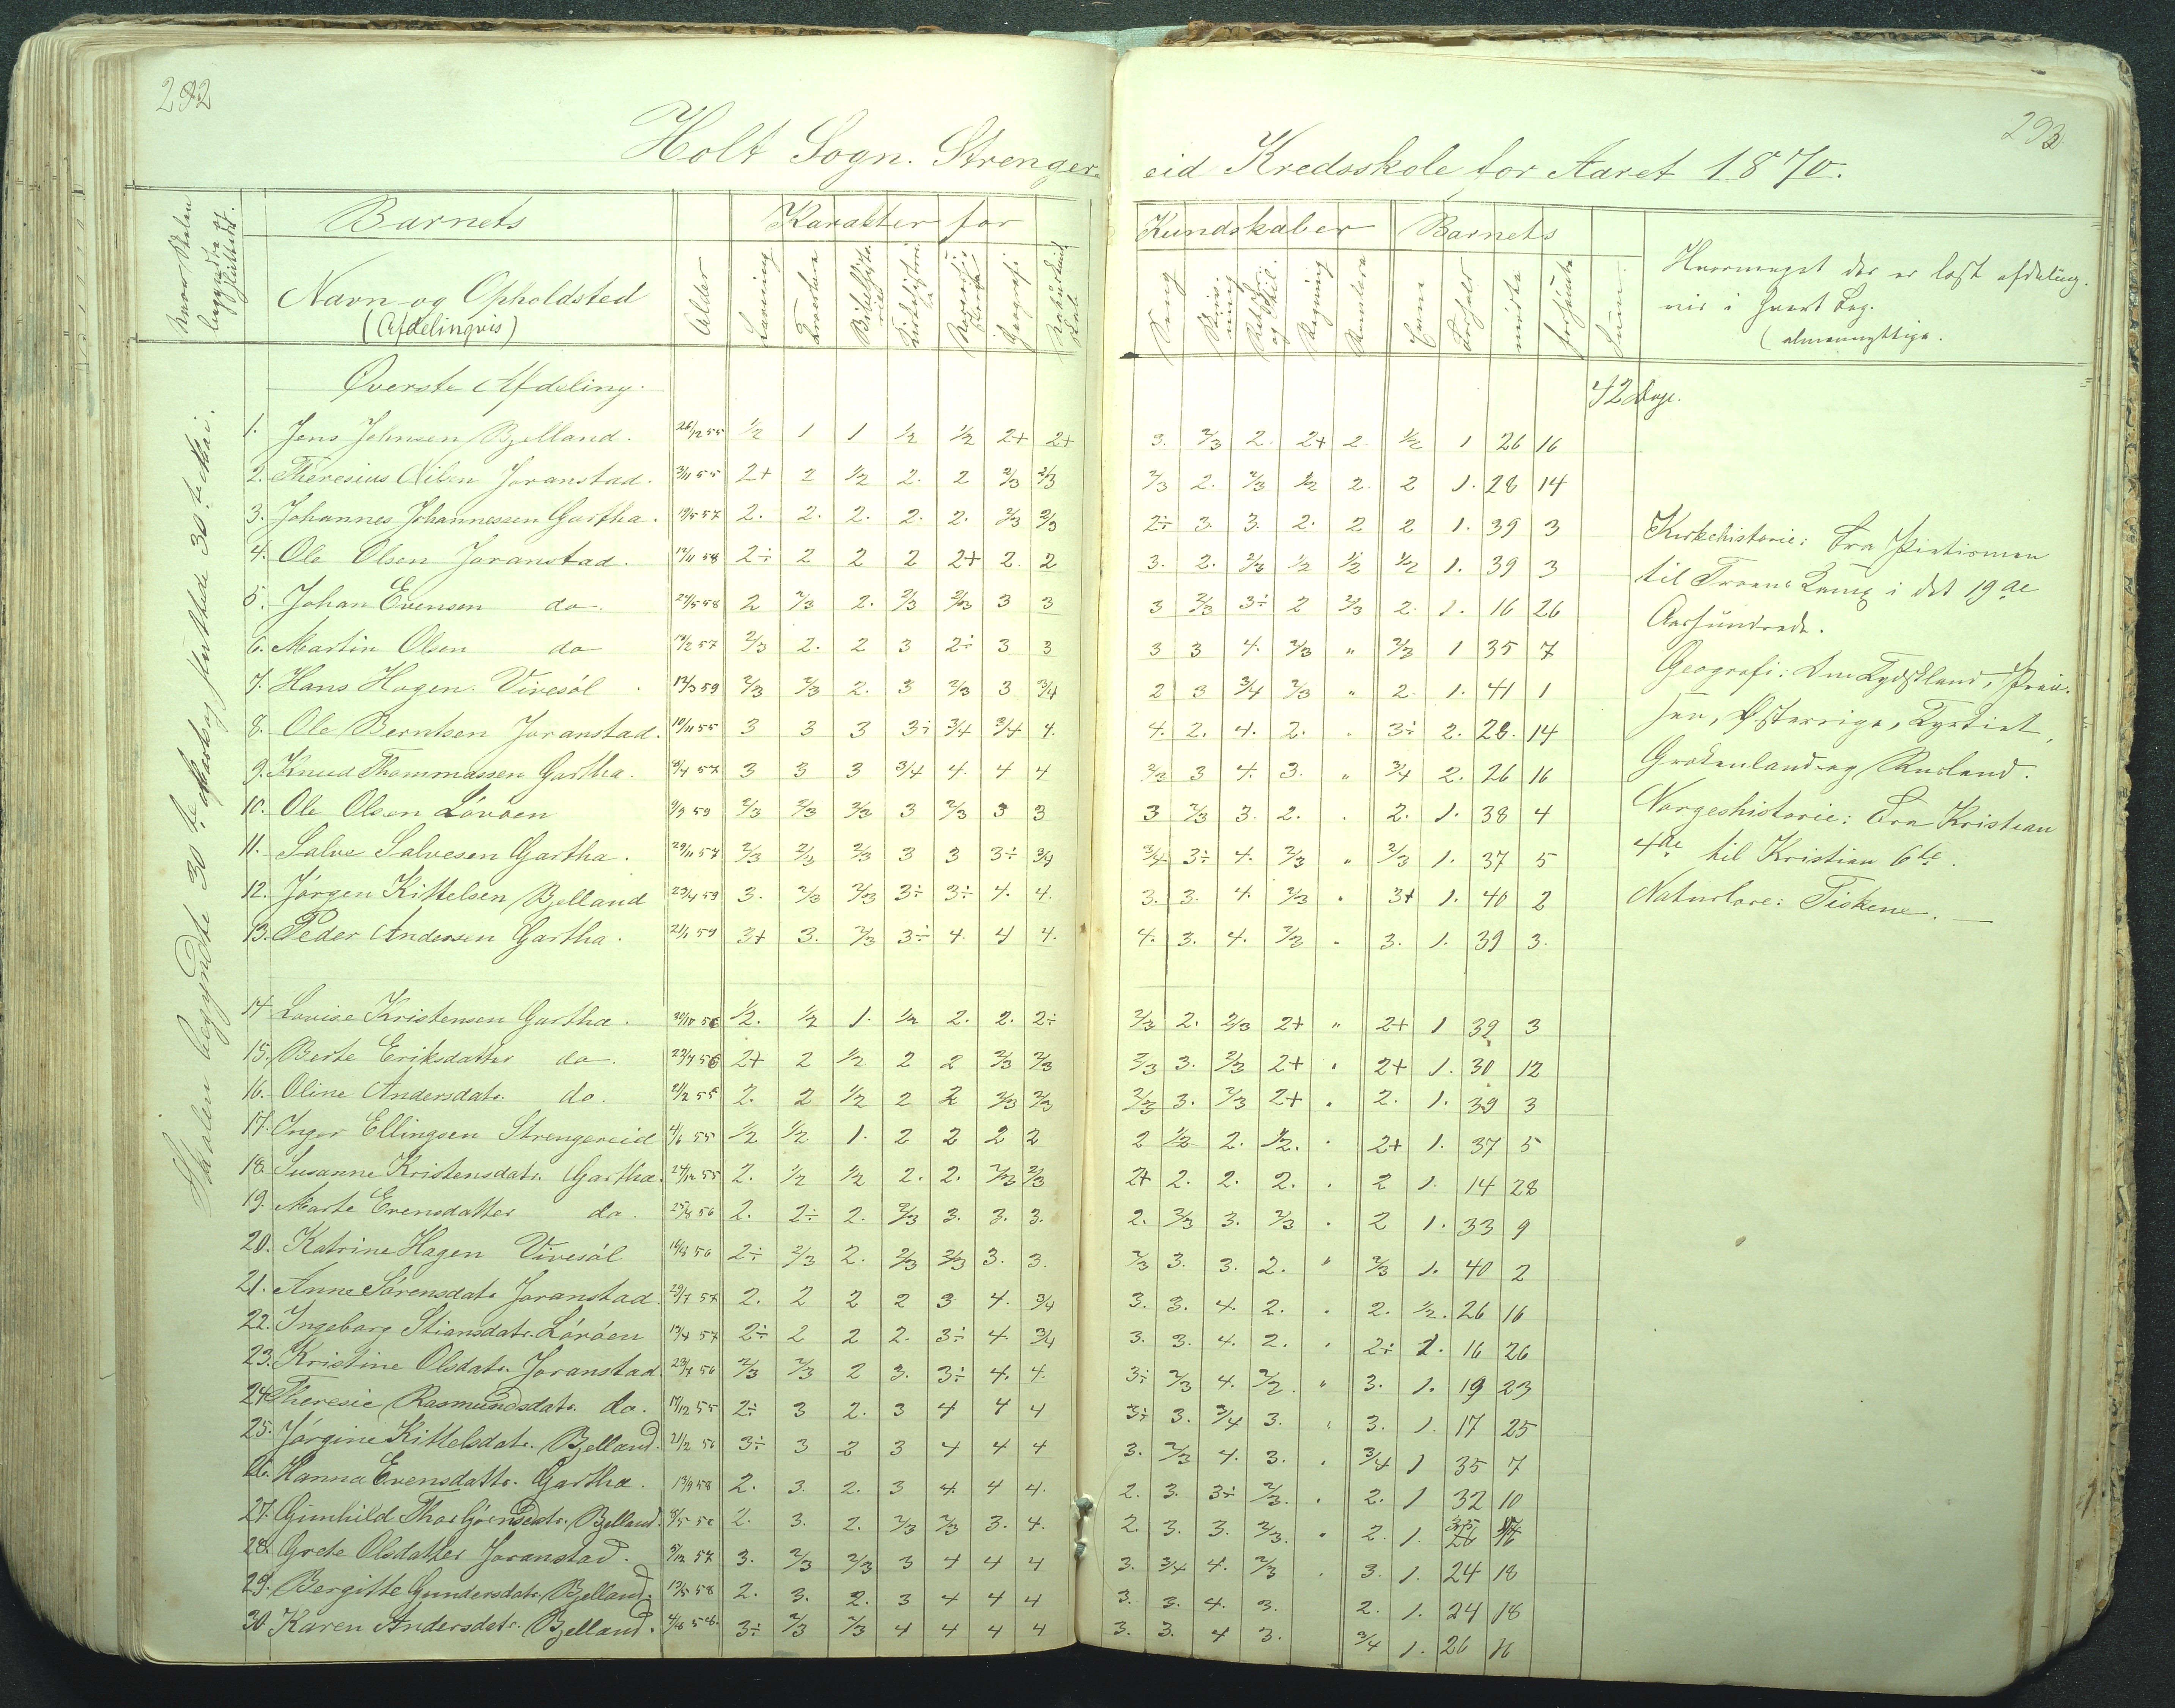 292
293
Holt Sogn. Strenger-
eid Kredsskole for Aaret 1870.
Barnets
Navn og Opholdsted
(Afdelingvis)
Alder
Karakter for
Læsning
Geografi
Kundskaber
Sang
Regning
Barnets
Evne
Forhold
mødte
forsømte
Hvormeget der er læst afdeling-
vis i hvert Fag.
Skolen begyndte 30te
Øverste Afdeling.
42 Dage.
1. Jens Johnsen Bjelland. 26/12 55 1/2 1 1 1/2 1/2 2+ 2+ 3. 2/3 2. 2+ 2 1/2 1 26 16
2. Theresius Nilsen Joranstad. 3/11 55 2+ 2 1/2 2. 2 2/3 2/3 2/3 2. 2/3 1/2 2. 2 1. 28 14
3. Johannes Johannessen Gartha. 19/5 57 2. 2. 2. 2. 2. 2/3 2/3 2÷ 3. 3. 2. 2 2 1. 39 3
4. Ole Olsen Joranstad. 12/11 58 2÷ 2 2 2 2+ 2. 2 3. 2. 2/3 1/2 1/2 1/2 1. 39 3
5. Johan Evensen do. 24/5 58 2 2/3 2. 2/3 2/3 3 3 3 2/3 3÷ 2 2/3 2. 1. 16 26
6. Martin Olsen do 19/2 57 2/3 2. 2 3 2÷ 3 3 3 3 4. 2/3 " 2/3 1 35 7
7. Hans Hagen. Vivesöl 12/3 59 2/3 2/3 2. 3 2/3 3 3/4 2 3 3/4 2/3 " 2. 1. 41 1
8. Ole Berntsen Joranstad. 10/11 55 3 3 3 3÷ 3/4 3/4 4. 4. 2. 4. 2. " 3÷ 2. 28. 14
9. Knud Thommassen Gartha. 8/4 57 3 3 3 3/4 4. 4 4 2/3 3 4. 3. " 3/4 2. 26 16
10. Ole Olsen Löröen 9/3 59 2/3 2/3 2/3 3 2/3 3 3 3 2/3 3. 2. . 2. 1. 38 4
11. Salve Salvesen Gartha. 29/11 57 2/3 2/3 2/3 3 3 3÷ 3/4 3/4 3÷ 4. 2/3 " 2/3 1. 37 5
12. Jörgen Kittelsen Bjelland 23/4 59 3. 2/3 2/3 3÷ 3÷ 4. 4. 3. 3. 4. 2/3 " 3+ 1. 40 2
13. Peder Andersen Gartha. 21/1 59 3+ 3. 2/3 3÷ 4. 4 4. 4. 3. 4. 2/3 " 3. 1. 39 3.
14 Lovise Kristensen Gartha. 30/10 56 1/2. 1/2 1. 1/2 2. 2. 2÷ 2/3 2. 2/3 2+ " 2+ 1 39 3
15. Berte Eriksdatter do. 23/7 56 2+ 2 1/2 2 2 2/3 2/3 2/3 3. 2/3 2+ . 2+ 1. 30 12
16. Oline Andersdatr. do. 21/2 55 2. 2 1/2 2 2 2/3 2/3 2/3 3. 2/3 2+ . 2. 1. 39 3
17. Inger Ellingsen Strengereid 4/6 55 1/2 1/2 1. 2 2 2 2 2 1/2 2. 1/2. . 2+ 1. 37 5
18. Susanne Kristensdatr. Gartha. 24/12 55 2. 1/2 1/2 2. 2. 2/3 2/3 2+ 2. 2. 2. . 2 1. 14 28
19. Marte Evensdatter do. 25/8 56 2. 2÷ 2. 2/3 3. 3. 3. 2. 2/3 3. 2/3 . 2 1. 33 9
20. Katrine Hagen Vivesöl 56 2÷ 2/3 2. 2/3 2/3 3. 3. 2/3 3. 3. 2. " 2/3 1. 40 2
21. Anne Sörensdatr Joranstad. 29/7 57 2. 2 2 2 3 4. 3/4 3. 3. 4. 2. . 2. 1/2. 26 16
22. Ingeborg Stiansdatr. Löröen 19/4 57 2÷ 2 2 2. 3÷ 4. 3/4 3. 3. 4. 2. . 2÷ 1. 16 26
23. Kristine Olsdatr. Joranstad 23/7 56 2/3 2/3 2 3. 3÷ 4. 4. 3÷ 2/3 4. 2/2. " 3. 1. 19 23
24. Theresie Rasmundsdatr. do. 17/12 55 2÷ 3 2. 3 4 4 4 3÷ 3. 3/4 3. " 3. 1. 17 25
25. Jörgine Kittelsdatr. Bjelland. 21/2 56 3÷ 3 2 3 4 4 4 3. 2/3 4. 3. . 3/4 1 35 7
26. Hanna Evensdattr. Gartha. 13/9 58 2. 3. 2. 3 4. 4 4. 2. 3. 3÷ 2/3. . 2. 1 32 10
27. Gunhild Thorbjörnsdatr. Bjelland. 2. 3. 2. 2/3 2/3 3. 4. 2. 3. 3. 2/3. . 2. 1.
28. Grete Olsdatter Joranstad. 3/12 57 3. 2/3 2/3 3 4 4 4 3. 3/4 4. 2/3 . 3. 1. 24 18
29. Bergitte Gundersdatr. Bjelland. 19/5 58 2. 3. 2. 3 4 4 4 3. 3. 4. 3. 2. 1. 24 18
30 Karen Andersdatr. Bjelland. 3÷ 2/3 2/3 4 4 4 4 3. 3. 4 3. 3/4 1. 26 16
Kirkehistorie: Fra Pietismen
til Troens Kamp i det 19de
Aarhundrede.
Geografi: Om Tydskland, Preu-
sen, Østerrige, Tyrkiet,
Grækenland og Rusland.
Norgeshistorie: Fra Kristian
4de til Kristian 6te.
Naturlære: Fiskene.